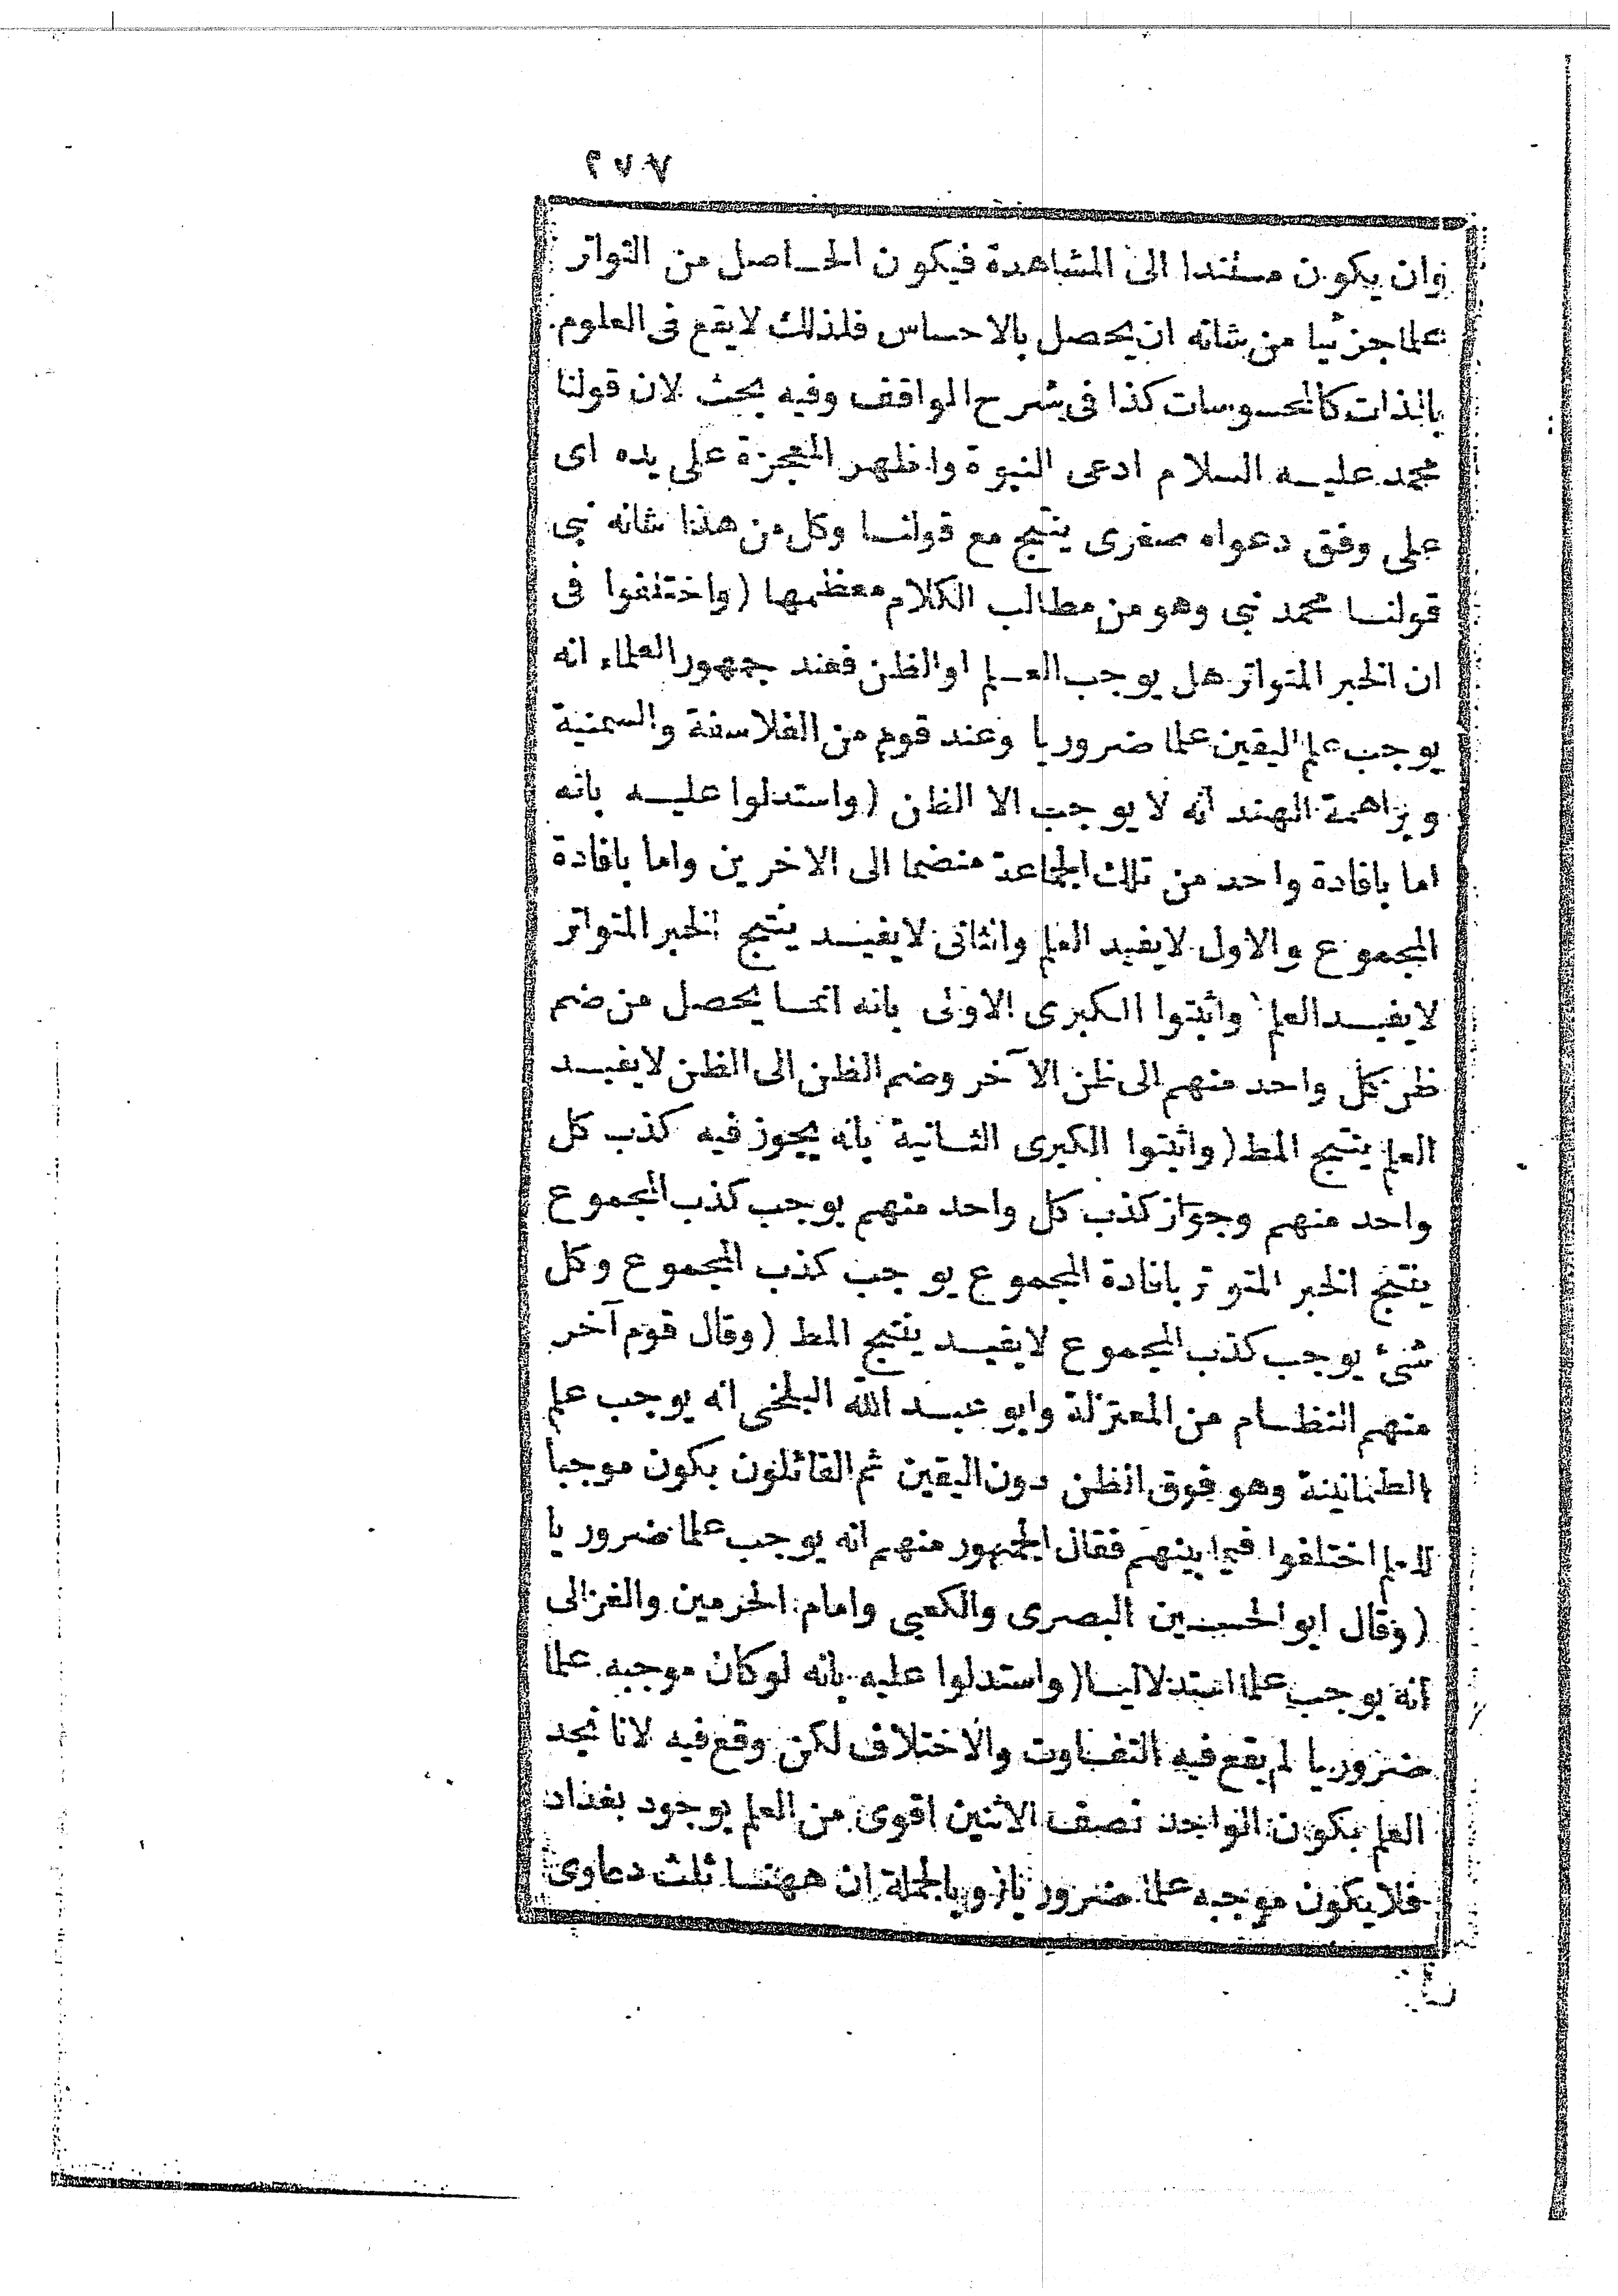 ٢٧٧
وان يكون مستندا الى المشاهدة فيكون الحاصل من التواتر
علما جزئيا من شانه ان يحصل بالاحساس فلذلك لايقع فى العلوم
بالذات كالمحسوسات كذا فى شرح المواقف وفيه بحث لان قولنا
محمد عليه السلام ادعى النبوة واظهر المعجزة على يده اى
على وفق دعواه صغرى ينتج مع قولنا وكل من هذا شانه نبى
قولنا محمد نبى وهو من مطالب الكلام معظمها (واختلفوا فى
ان الخبر المتواتر هل يوجب العلم او الظن فعند جمهور العلماء انه
يوجب علم اليقين علما ضروريا وعند قوم من الفلاسفة والسمنية
وبراهمة الهند انه لا يوجب الا الظن (واستدلوا عليه بانه
اما بافادة واحد من تلك الجماعة منضما الى الاخرين واما بافادة
المجموع والاول لايفيد العلم والثانى لايفيد ينتج الخبر المتواتر
لايفيد العلم واثبتوا الكبرى الاولى بانه انما يحصل من ضم
ظن كل واحد منهم الى ظن الآخر وضم الظن الى الظن لايفيد
العلم ينتج المط (واثبتوا الكبرى الثانية بانه يجوز فيه كذب كل
واحد منهم وجواز كذب كل واحد منهم يوجب كذب المجموع
ينتج الخبر المتوتر بافادة المجموع يوجب كذب المجموع وكل
شئ يوجب كذب المجموع لايفيد ينتج المط (وقال قوم آخر
منهم النظام من المعتزلة وابو عبد الله البلخى انه يوجب علم
الطمانينة وهو فوق الظن دون اليقين ثم القائلون بكون موجبا
للعلم اختلفوا فيما بينهم فقال الجمهور منهم انه يوجب علما ضروريا
(وقال ابو الحسين البصرى والكعبى وامام الحرمين والغزالى
انه يوجب علما استدلاليا (واستدلوا عليه بانه لوكان موجبه علما
ضروريا لم يقع فيه التفاوت والاختلاف لكن وقع فيه لانا نجد
العلم بكون الواحد نصف الاثنين اقوى من العلم بوجود بغداد
فلايكون موجبه علما ضروريا (وبالجملة ان ههنا ثلث دعاوى